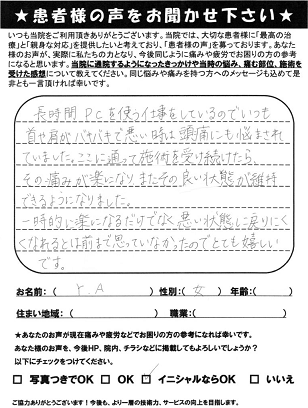 ★患者様の声をお聞かせ下さい★
いつも当院をご利用頂きありがとうございます。当院では、大切な患者様に「最高の治
療」と「親身な対応」を提供したいと考えており、「患者様の声」を募っております。あなた
様のお声が、実際に私たちの力となり、今後同じように痛みや疲労でお困りの方の参考
になると思います。当院に通院するようになったきっかけや当時の悩み、痛む部位、施術を
受けた感想について教えてください。同じ悩みや痛みを持つ方へのメッセージも込めて是
非とも一言頂ければ幸いです。
長時間PCを使う仕事をしているのでいつも
首や肩がバキバキで悪い時は頭痛にも悩まされ
ていました。ここに通って施術を受け続けたら、
その痛みが楽になりまたその良い状態が維持
できるようになりました。
一時的に楽になるだけでなく悪い状態に戻りにく
くなれるとは前まで思っていなかったのでとても嬉しい
です。
お名前：（ Y.A ）性別：（ 女 ）年齢：（ ）
住まい地域：（ ）職業：（ ）
★あなたのお声が現在痛みや疲労などでお困りの方の参考になれば幸いです。
あなた様のお声を、今後HP、院内、チラシなどに掲載してもよろしいでしょうか？
以下にチェックをつけてください。
□ 写真つきでOK □ OK ☑ イニシャルならOK □ いいえ
ご協力ありがとうございます！今後も、より一層の技術力、サービスの向上を目指します。